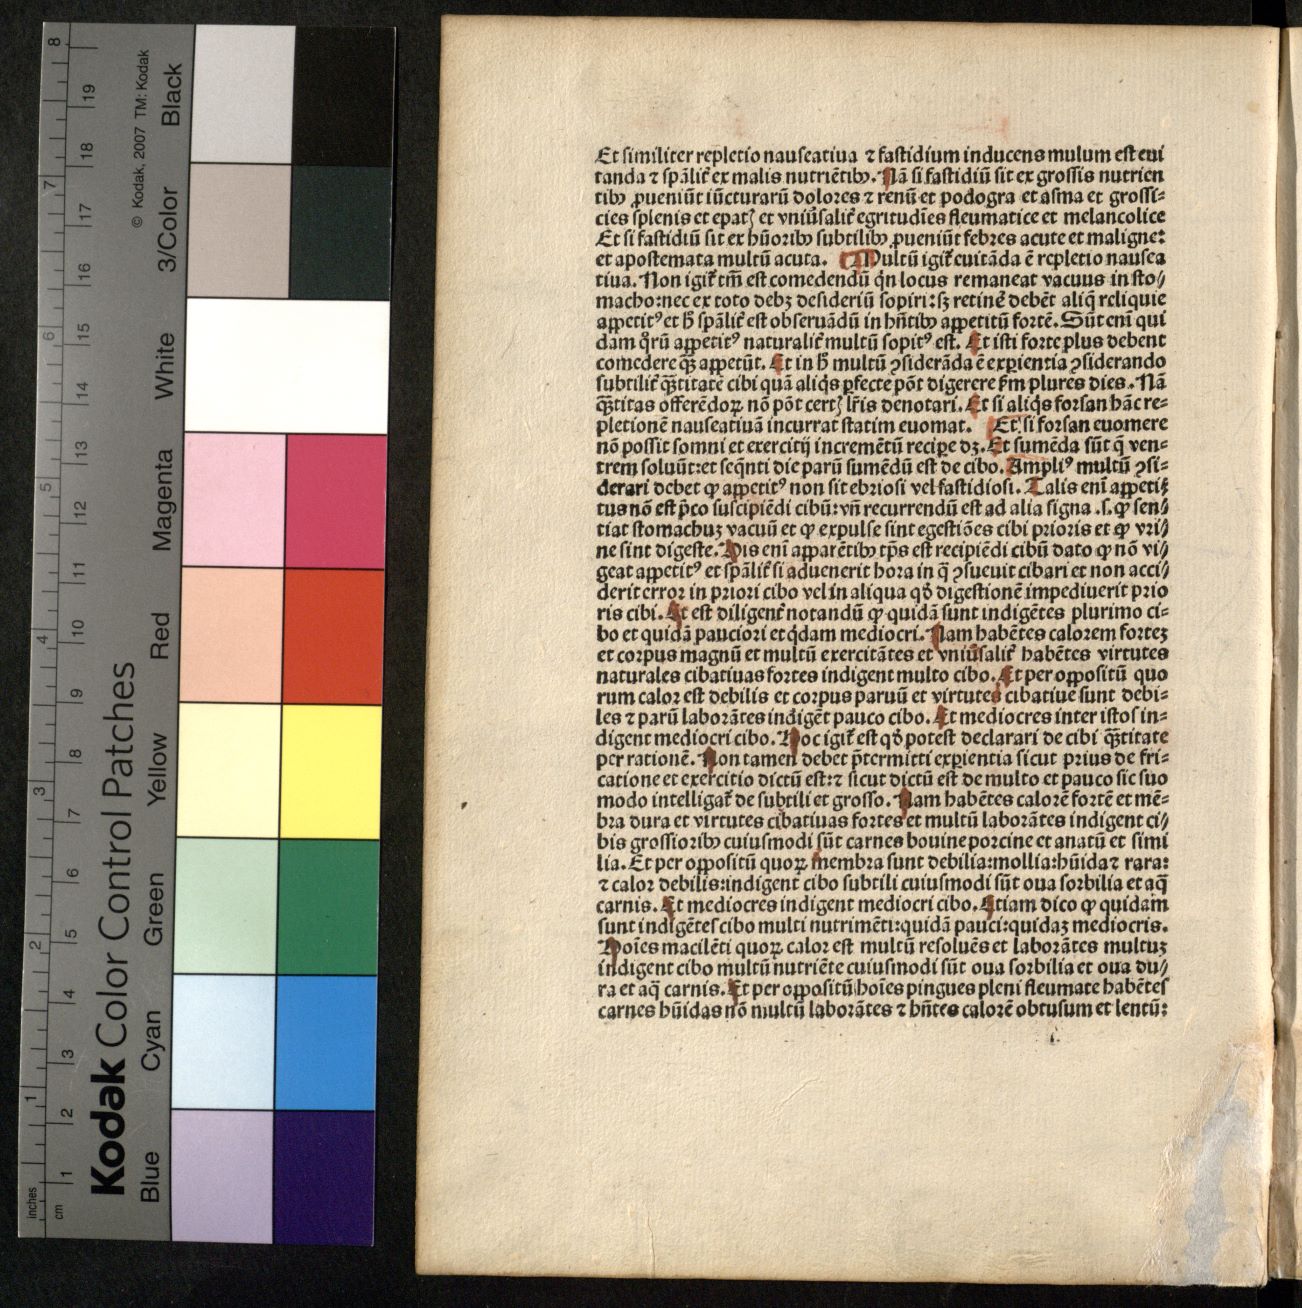 Et similiter repletio nauseatiua ⁊ fastidium inducens mulum est eui
tanda ⁊ spālit̄ ex malis nutriētibꝰ. Nā si fastidiū sit ex grossis nutrien
tibꝰ ꝓueniūt iūcturarū dolores ⁊ renū et podogra et asma et grossi-
cies splenis et epatꝭ et vniūsalit̄ egritudīes fleumatice et melancolice
Et si fastidiū sit ex hūoribꝰ subtilibꝰ ꝓueniūt febres acute et maligne:
et apostemata multū acuta. Multū igit̄ euitāda ē repletio nausea
tiua. Non igit̄ tm̄ est comedendū qn̄ locus remaneat vacuus in sto/
macho: nec ex toto debꝫ desideriū sopiri: sꝫ retinē debēt aliq̄ reliquie
appetitꝰ et h̄ spālit̄ est obseruādū in hn̄tibꝰ appetitū fortē. Sūt enī qui
dam qͦrū appetitꝰ naturalit̄ multū sopitꝰ est. Et isti forte plus debent
comedere qꝫ appetūt. Et in h̄ multū ꝯsiderāda ē exꝑientia ꝯsiderando
subtilit̄ qꝫtitatē cibi quā aliqͥs ꝑfecte pōt digerere ẜm plures dies. Nā
qꝫtitas offerēdoꝝ nō pōt certꝭ lr̄is denotari. Et si aliqͥs forsan hāc re-
pletionē nauseatiuā incurrat statim euomat. Et si forsan euomere
nō possit somni et exercitij incremētū recipe dꝫ. Et sumēda sūt q̄ ven-
trem soluūt: et seqn̄ti die parū sumēdū est de cibo. Ampliꝰ multū ꝯsi-
derari debet ꝙ appetitꝰ non sit ebriosi vel fastidiosi. Talis enī appeti-
tus nō est p̄co suscipiēdi cibū: vn̄ recurrendū est ad alia signa .s. ꝙ sen/
tiat stomachuꝫ vacuū et ꝙ expulse sint egestiōes cibi prioris et ꝙ vri/
ne sint digeste. His enī apparētibꝰ tp̄s est recipiēdi cibū dato ꝙ nō vi/
geat appetitꝰ et spālit̄ si aduenerit hora in q̄ ꝯsueuit cibari et non acci/
derit error in priori cibo vel in aliqua qd̄ digestionē impediuerit prio
ris cibi. Et est diligent̄ notandū ꝙ quidā sunt indigētes plurimo ci-
bo et quidā pauciori et qͥdam mediocri. Nam habētes calorem forteꝫ
et corpus magnū et multū exercitātes et vniūsalit̄ habētes virtutes
naturales cibatiuas fortes indigent multo cibo. Et per oppositū quo
rum calor est debilis et corpus paruū et virtutes cibatiue sunt debi-
les ⁊ parū laborātes indigēt pauco cibo. Et mediocres inter istos in-
digent mediocri cibo. Hoc igit̄ est qd̄ potest declarari de cibi qꝫtitate
per rationē. Non tamen debet p̄termitti exꝑientia sicut prius de fri-
catione et exercitio dictū est: ⁊ sicut dictū est de multo et pauco sic suo
modo intelligat̄ de subtili et grosso. Nam habētes calorē fortē et mē-
bra dura et virtutes cibatiuas fortes et multū laborātes indigent ci/
bis grossioribꝰ cuiusmodi sūt carnes bouine porcine et anatū et simi
lia. Et per oppositū quoꝝ membra sunt debilia: mollia: hūida ⁊ rara:
⁊ calor debilis: indigent cibo subtili cuiusmodi sūt oua sorbilia et aq̄
carnis. Et mediocres indigent mediocri cibo. Etiam dico ꝙ quidam
sunt indigētes cibo multi nutrimēti: quidā pauci: quidaꝫ mediocris.
Hoīes macilēti quoꝝ calor est multū resoluēs et laborātes multuꝫ
indigent cibo multū nutriēte cuiusmodi sūt oua sorbilia et oua du/
ra et aq̄ carnis. Et per oppositū hoīes pingues pleni fleumate habētes
carnes hūidas nō multū laborātes ⁊ hn̄tes calorē obtusum et lentū:
Kodak Color Control Patches
© Kodak, 2007 TM: Kodak
Blue Cyan Green Yellow Red Magenta White 3/Color Black
inches 1 2 3 4 5 6 7 8
cm 1 2 3 4 5 6 7 8 9 10 11 12 13 14 15 16 17 18 19